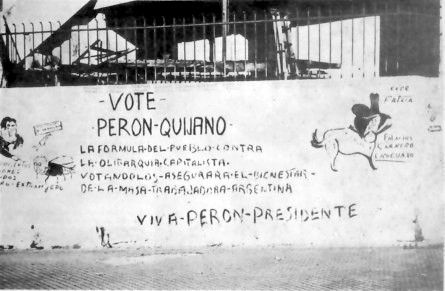 - VOTE -
- PERON - QUIJANO -
LA FORMULA - DEL - PUEBLO - CONTRA
LA - OLIGARQUIA - CAPITALISTA.
VOTANDOLOS - ASEGURARA - EL - BIENESTAR -
- DE - LA - MASA - TRABAJADORA - ARGENTINA
VIVA - PERON - PRESIDENTE